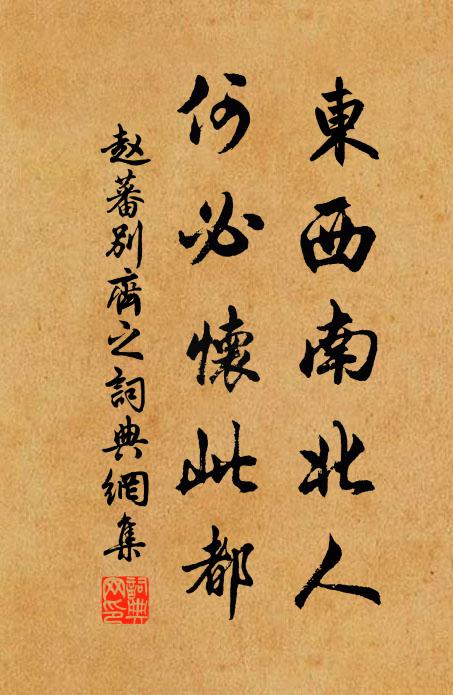 東西南北人
何必懷此都
赵蕃别齊之詞典網集
詞典网印